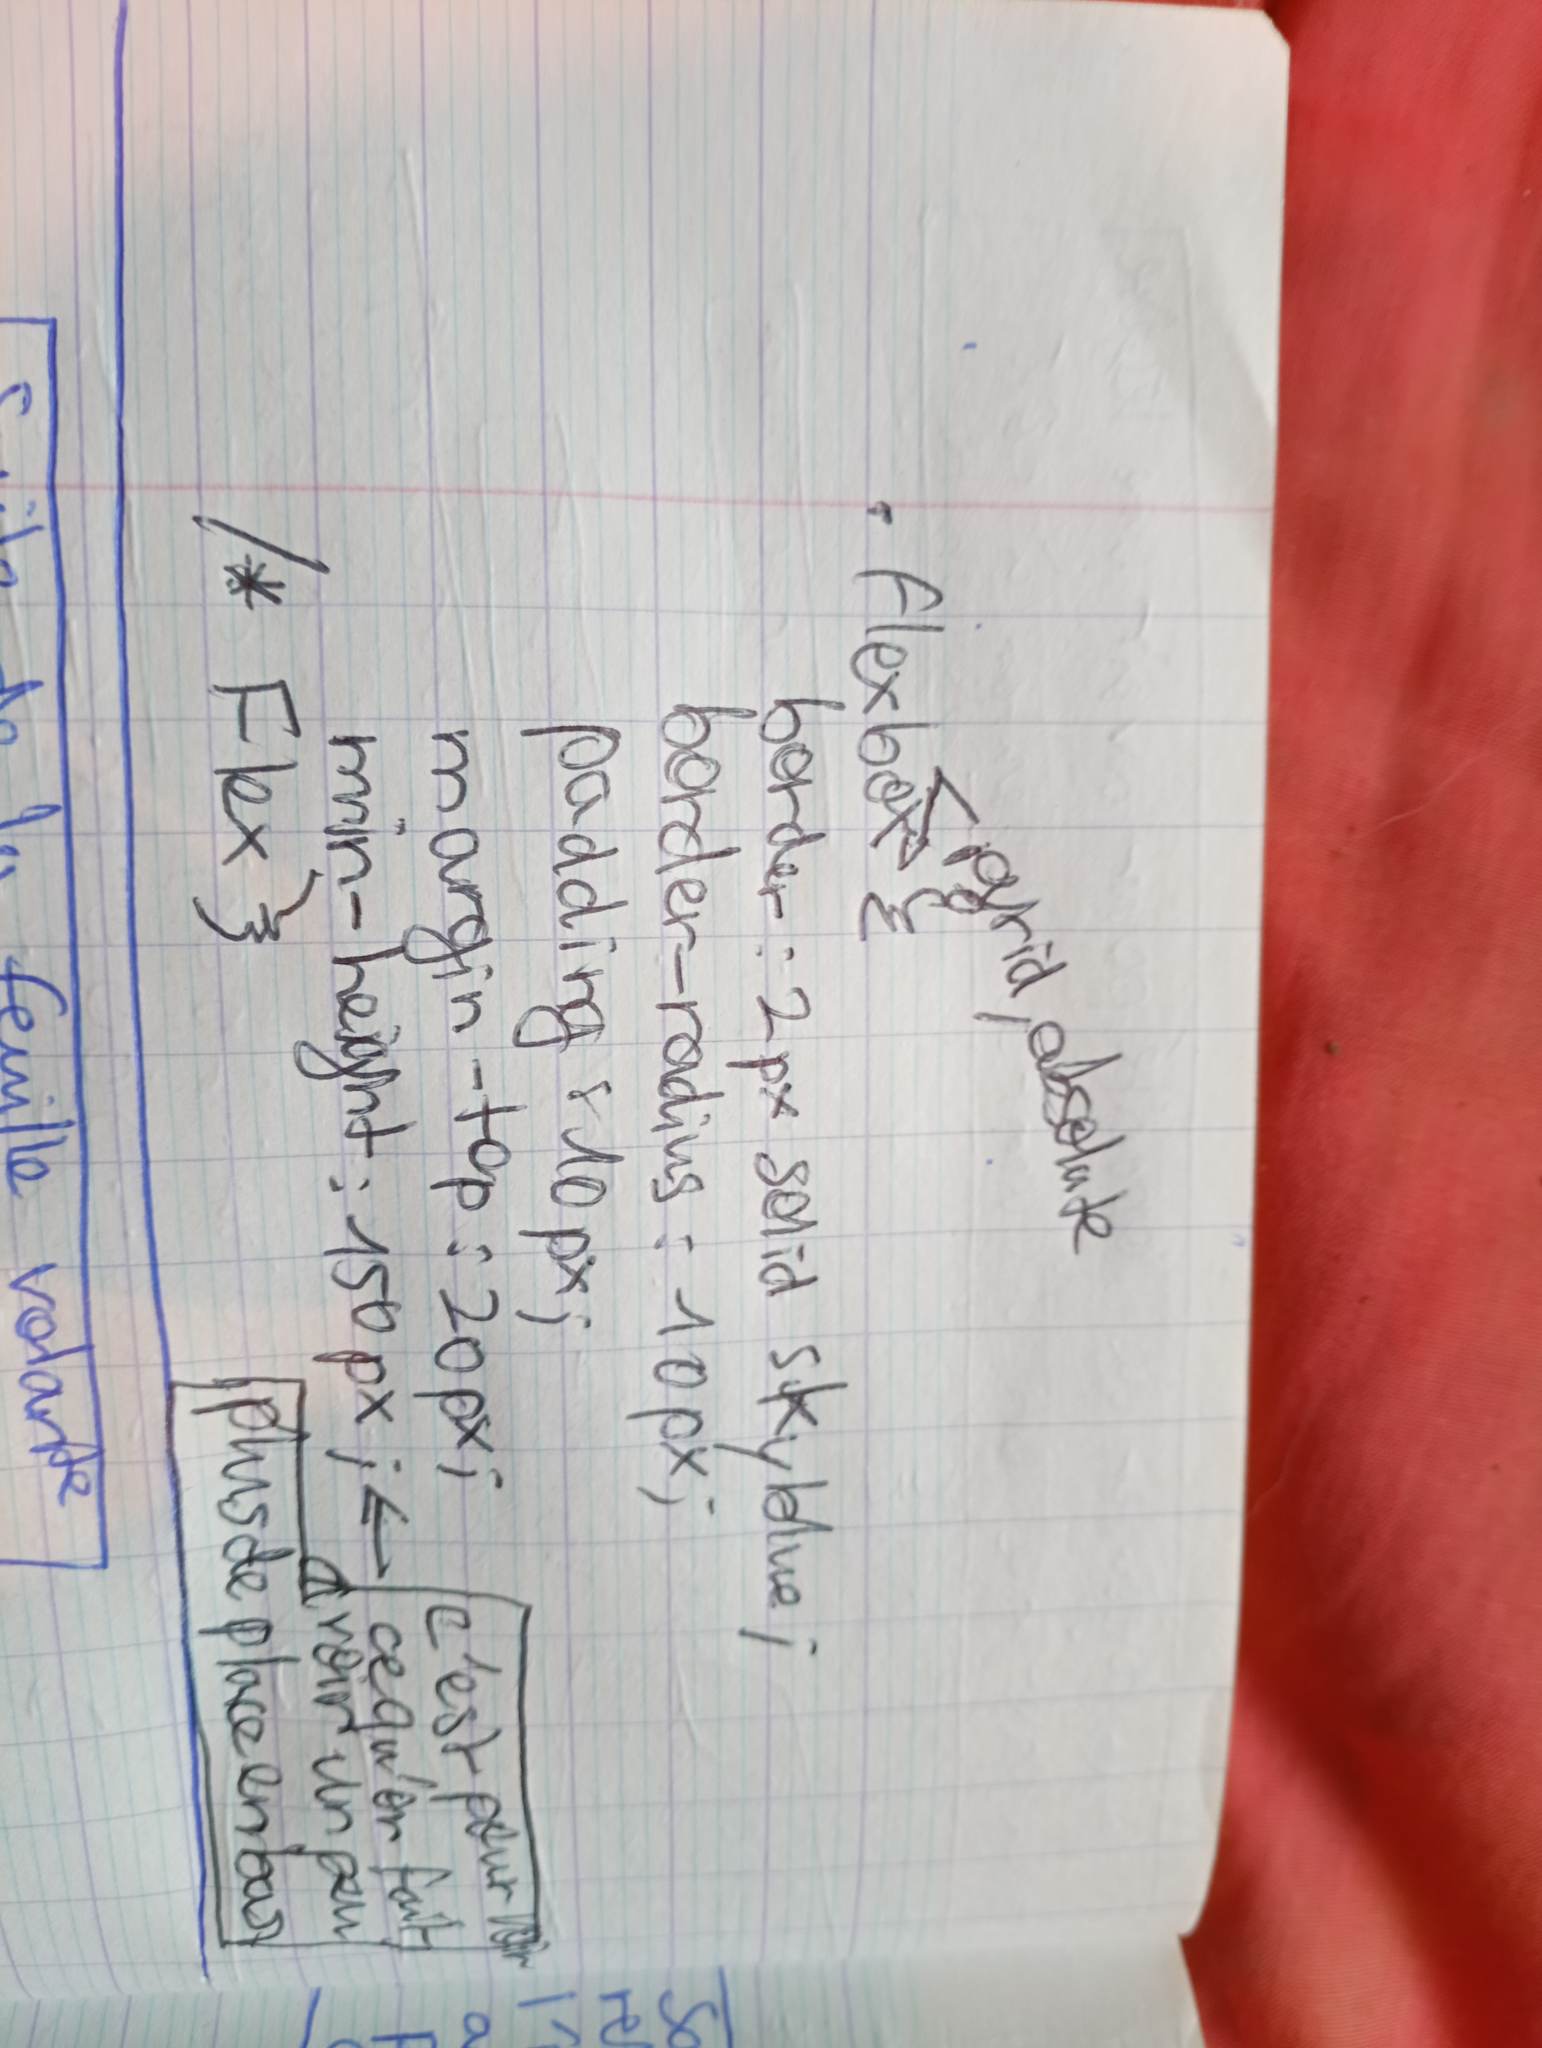 , grid, absolute
. flexbox {
border : 2px solid skyblue ;
border-radius : 10px ;
padding : 10px ;
margin-top : 20px ;
min-height : 150px ; ←
/* Flex }
c'est pour voir
ce qu'on fait
avoir un peu
plus de place en bas
Suite de la feuille volante